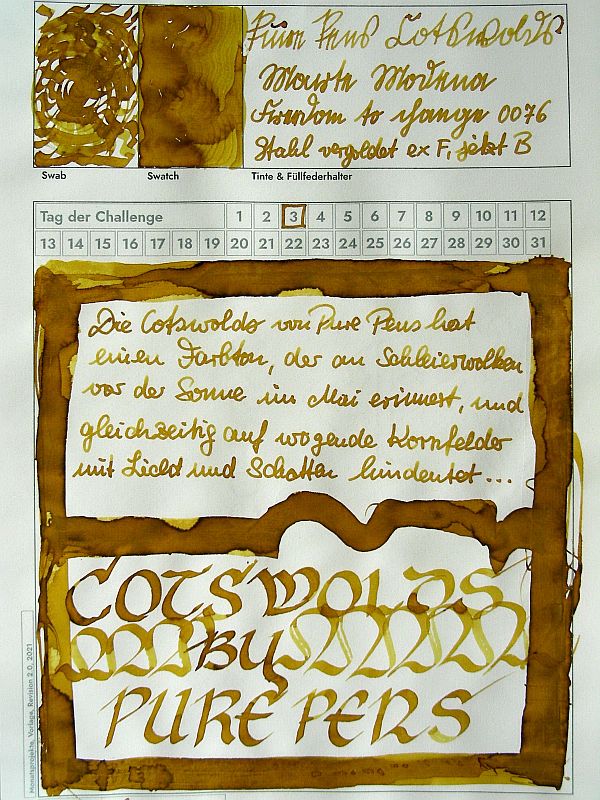 Pure Pens Cotswolds
Maiste Modena
Freedom to change 0076
Stahl vergoldet ex F, jetzt B
Swab Swatch Tinte & Füllfederhalter
Tag der Challenge 1 2 3 4 5 6 7 8 9 10 11 12
13 14 15 16 17 18 19 20 21 22 23 24 25 26 27 28 29 30 31
Die Cotswolds von Pure Pens hat
einen Farbton, der an Schleierwolken
vor der Sonne im Mai erinnert, und
gleichzeitig auf wogende Kornfelder
mit Licht und Schatten hindeutet ...
COTSWOLDS
BY
PURE PENS
Monatsprojekte, Vorlage, Revision 2.0, 2021